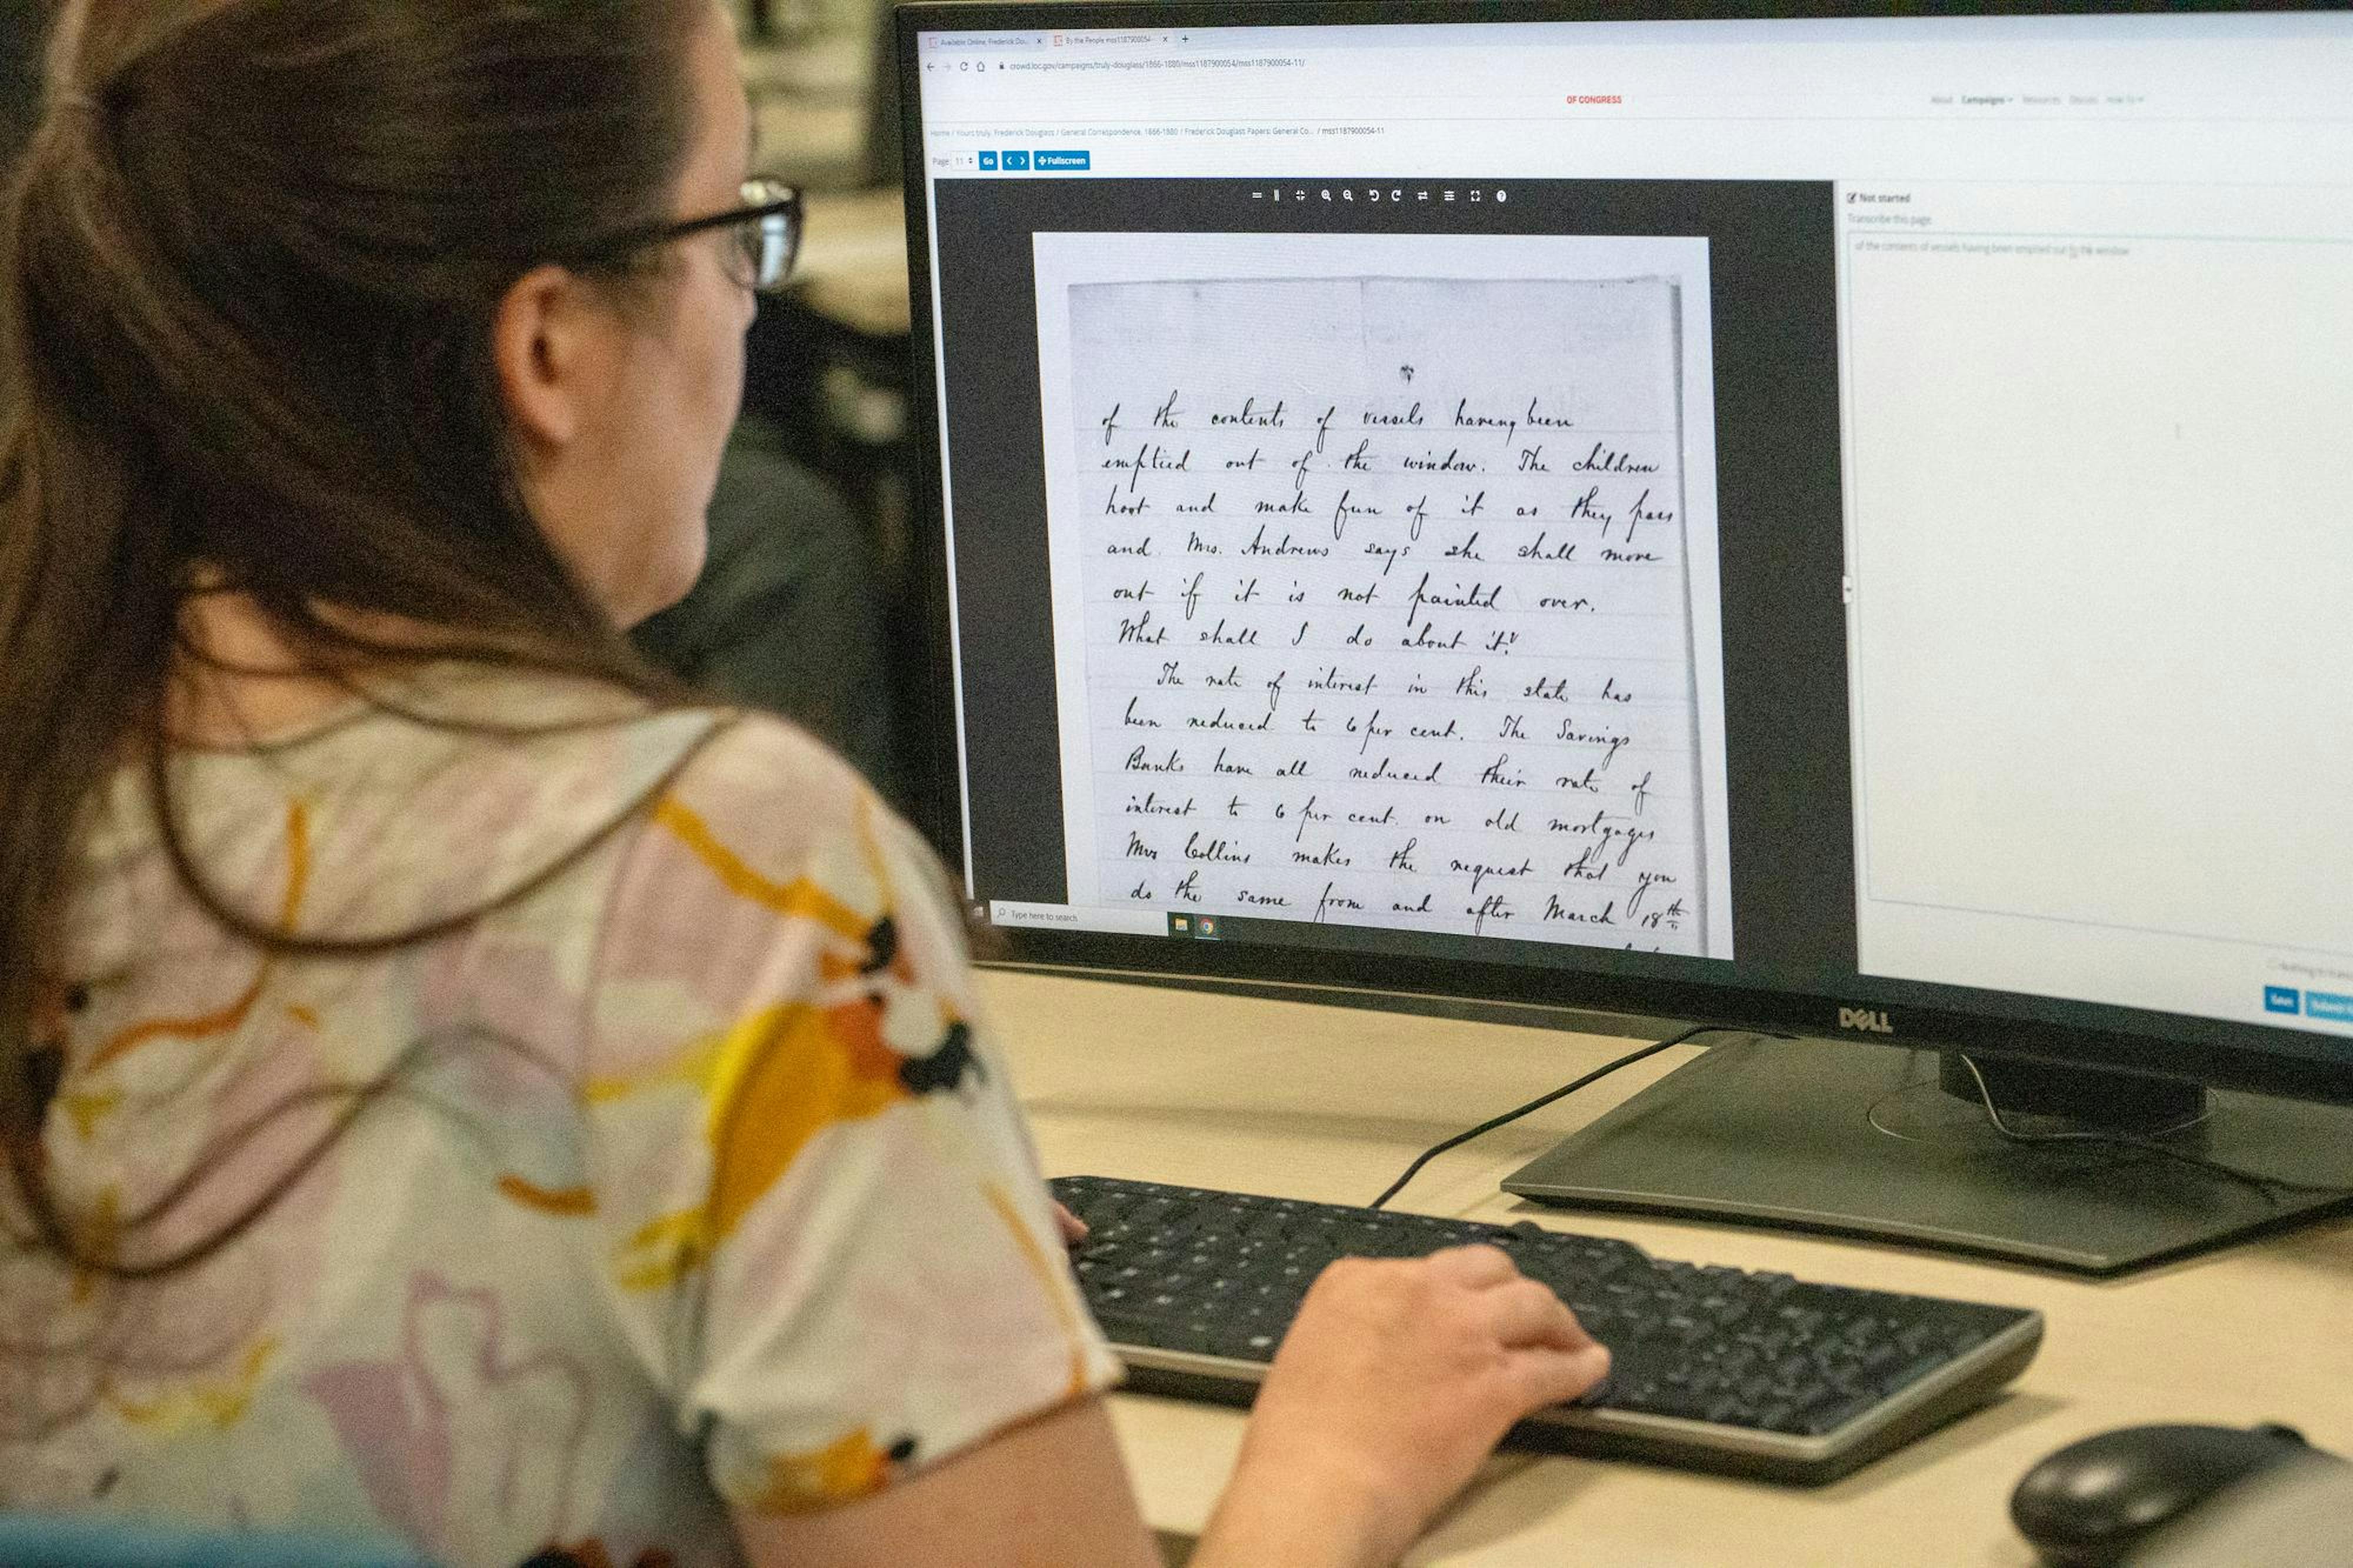 Available Online, Frederick Do...
By the People mss1187900054-
crowd.loc.gov/campaigns/truly-douglass/1866-1880/mss1187900054/mss1187900054-11/
OF CONGRESS
About Campaigns Resources Discuss How To
Home / Yours truly, Frederick Douglass / General Correspondence, 1866-1880 / Frederick Douglass Papers: General Co... / mss1187900054-11
Page 11 Go Fullscreen
Not started
Transcribe this page.
of the contents of vessels having been emptied out the window
of the contents of vessels having been
emptied out of the window. The children
hoot and make fun of it as they pass
and Mrs. Andrews says she shall move
out if it is not painted over.
What shall I do about it?
The rate of interest in this state has
been reduced to 6 per cent. The Savings
Banks have all reduced their rate of
interest to 6 per cent. on old mortgages
Mrs Collins makes the request that you
do the same from and after March 18th
Type here to search
Save
DELL